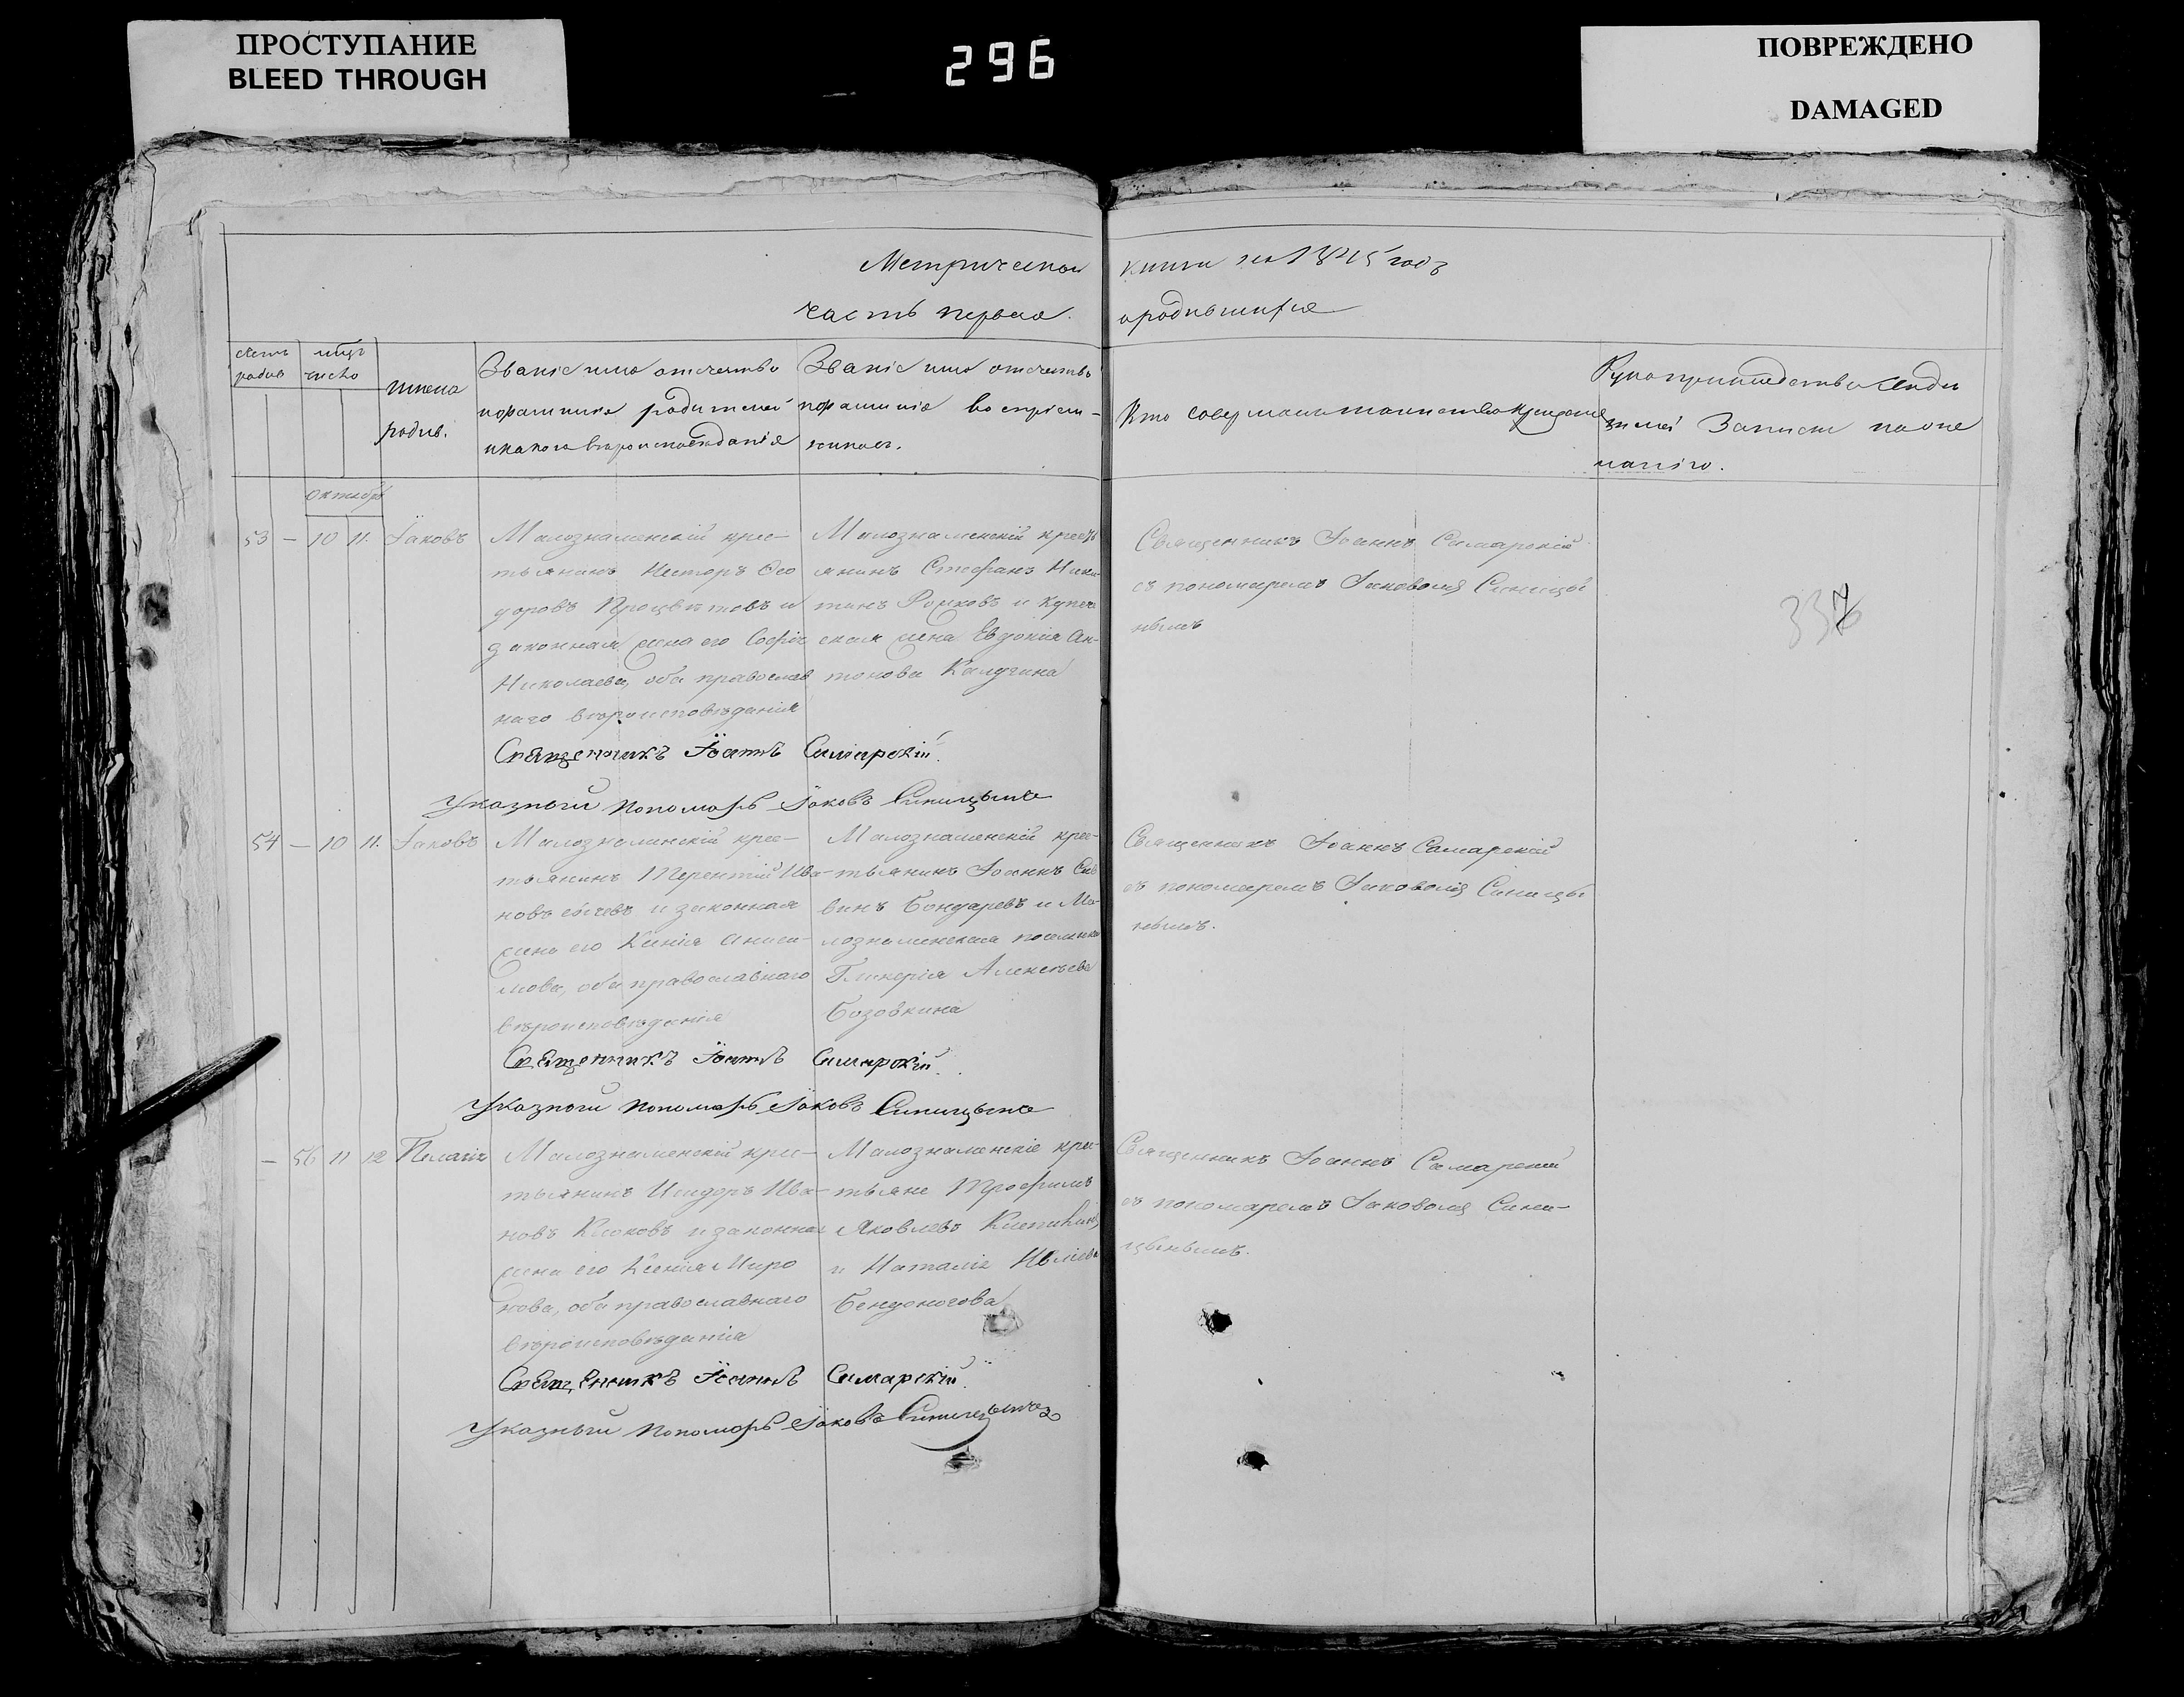 ПРОСТУПАНИЕ
BLEED THROUGH
296
ПОВРЕЖДЕНО
DAMAGED
Метрической книги на 1845 годъ
часть первая о родившихся
счетъ родив.
мцъ число
имена родив.
Званіе имя отечество
и фамилия родителей
и какого вероисповеданія
Званіе имя отечество
и фамилия воспрiем-
никовъ.
Кто совершалъ таинство крещенія
Рукоприкладство свиде
телей записи по же
ланiю.
октябрь
53 - 10 11. Іаковъ
Малознаменскій крес-
тьянинъ Несторъ Ѳео
доровъ Процвѣтовъ и
законная жена его Софія
Николаева, оба православ
наго вѣроисповѣданія
Малознаменскій кресть
янинъ Стефанъ Ники-
тинъ и купече
ская жена Евдокія Ан-
тонова Калугина
Священникъ Іоаннъ Самарскій
съ пономаремъ Іаковомъ Синицы
нымъ
337
Священникъ Іоаннъ Самарскій.
Указный пономарь Іаковъ Синицынъ
54 - 10 11. Іаковъ
Малознаменскій крес-
тьянинъ Терентій Ива-
новъ и законная
жена его Ксенія Аниси-
мова, оба православнаго
вѣроисповѣданія
Малознаменскій крес-
тьянинъ Іоаннъ Сав
винъ Бондаревъ и Ма-
лознаменская поселянка
Гликерія Алексѣева
Бозовкина
Священникъ Іоаннъ Самарскій
съ пономаремъ Іаковомъ Синицы
нымъ.
Священникъ Іоаннъ Самарскій.
Указный пономарь Іаковъ Синицынъ
- 56 11 12 Пелагія
Малознаменскій крес-
тьянинъ Исидоръ Ива-
новъ Клоковъ и законная
жена его Ксенія Миро
нова, оба православнаго
вѣроисповѣданія
Малознаменскіе крес-
тьяне Трофимъ
Яковлевъ
и Наталія
Бендоногова
Священникъ Іоаннъ Самарскій
съ пономаремъ Іаковомъ Сини-
цынымъ.
Священникъ Іоаннъ Самарскій.
Указный пономарь Іаковъ Синицынъ